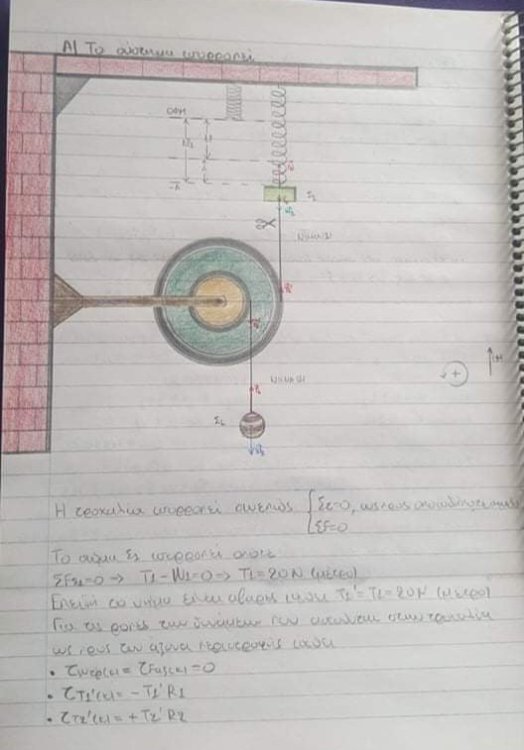 Α) Το σύστημα ισορροπεί
ΘΦΜ
Σ₂
Νήμα(2)
Νήμα(1)
Σ₁
(+)
+
Η τροχαλία ισορροπεί συνεπώς { Στ=0, ως προς οποιοδήποτε σημείο
ΣF=0
Το σώμα Σ₁ ισορροπεί οπότε
ΣFΣ₁=0 → T₁-W₁=0 → T₁=20N (μέτρο)
Επειδή το νήμα είναι αβαρές ισχύει T₁'=T₁=20N (μέτρο)
Για τις ροπές των δυνάμεων που ασκούνται στην τροχαλία
ως προς τον άξονα περιστροφής ισχύει
• τWτρ(κ) = τFαξ(κ) = 0
• τT₁'(κ) = -T₁'R₁
• τT₂'(κ) = +T₂'R₂